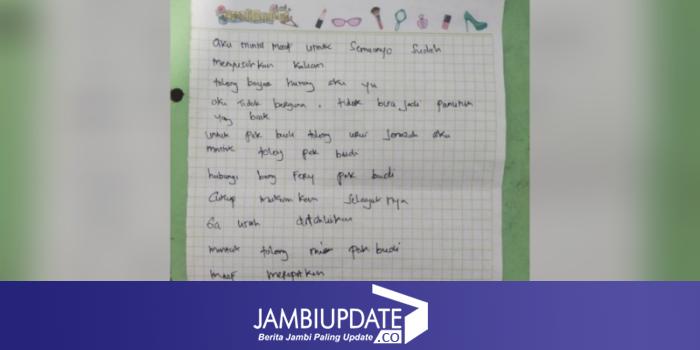 aku minta maaf untuk semuanyo sudah
menyusahkan kalian
tolong bayar hutang aku yu
aku tidak berguna, tidak bisa jadi panutan
yang baik
untuk pak budi tolong urus jenazah aku
tolong pak budi
hubungi bang Fery pak budi
Cukup makamkan selayak nya
Ga usah ditahlilkan
tolong pak budi
maaf merepotkan
JAMBIUPDATE
.CO
Berita Jambi Paling Update